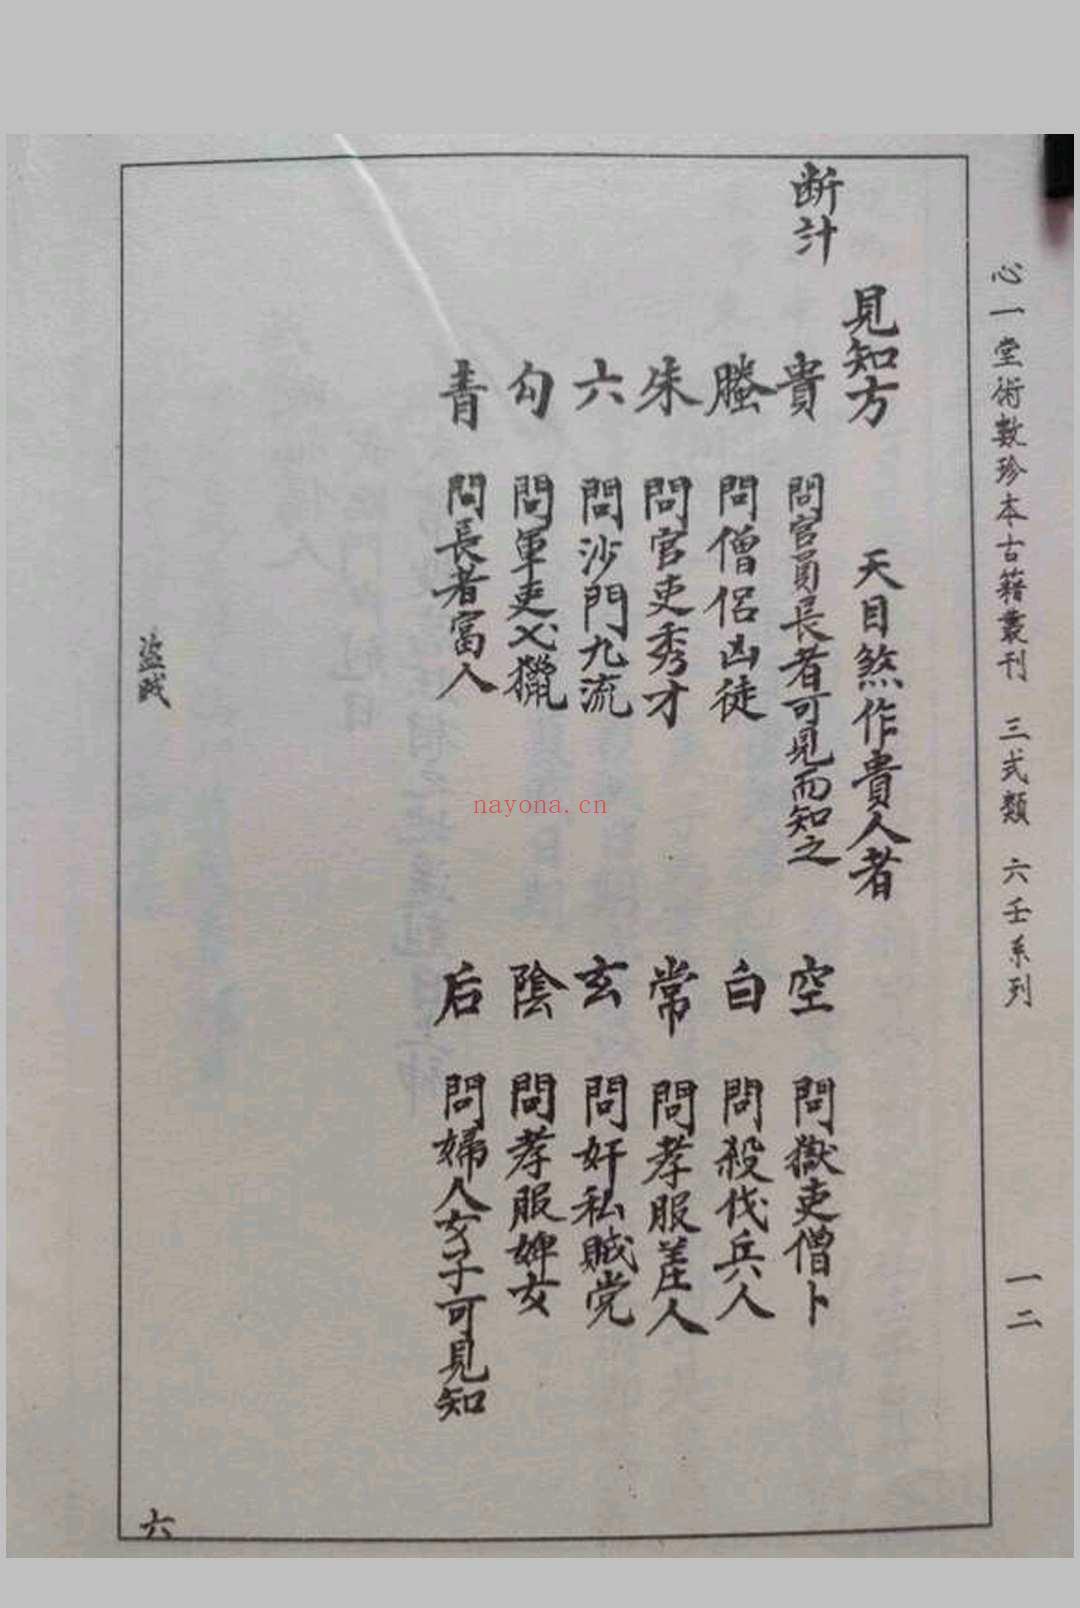 心一堂術數珍本古籍叢刊 三式類 六壬系列
一二
見知方 天目煞作貴人者
断計
貴 問官員長者可見而知之
螣 問僧侶凶徒
朱 問官吏秀才
六 問沙門九流
勾 問軍吏弋獵
青 問長者富人
空 問獄吏僧卜
白 問殺伐兵人
常 問孝服差人
玄 問奸私賊党
陰 問孝服婢女
后 問婦人女子可見知
盜賊
六
nayona.cn